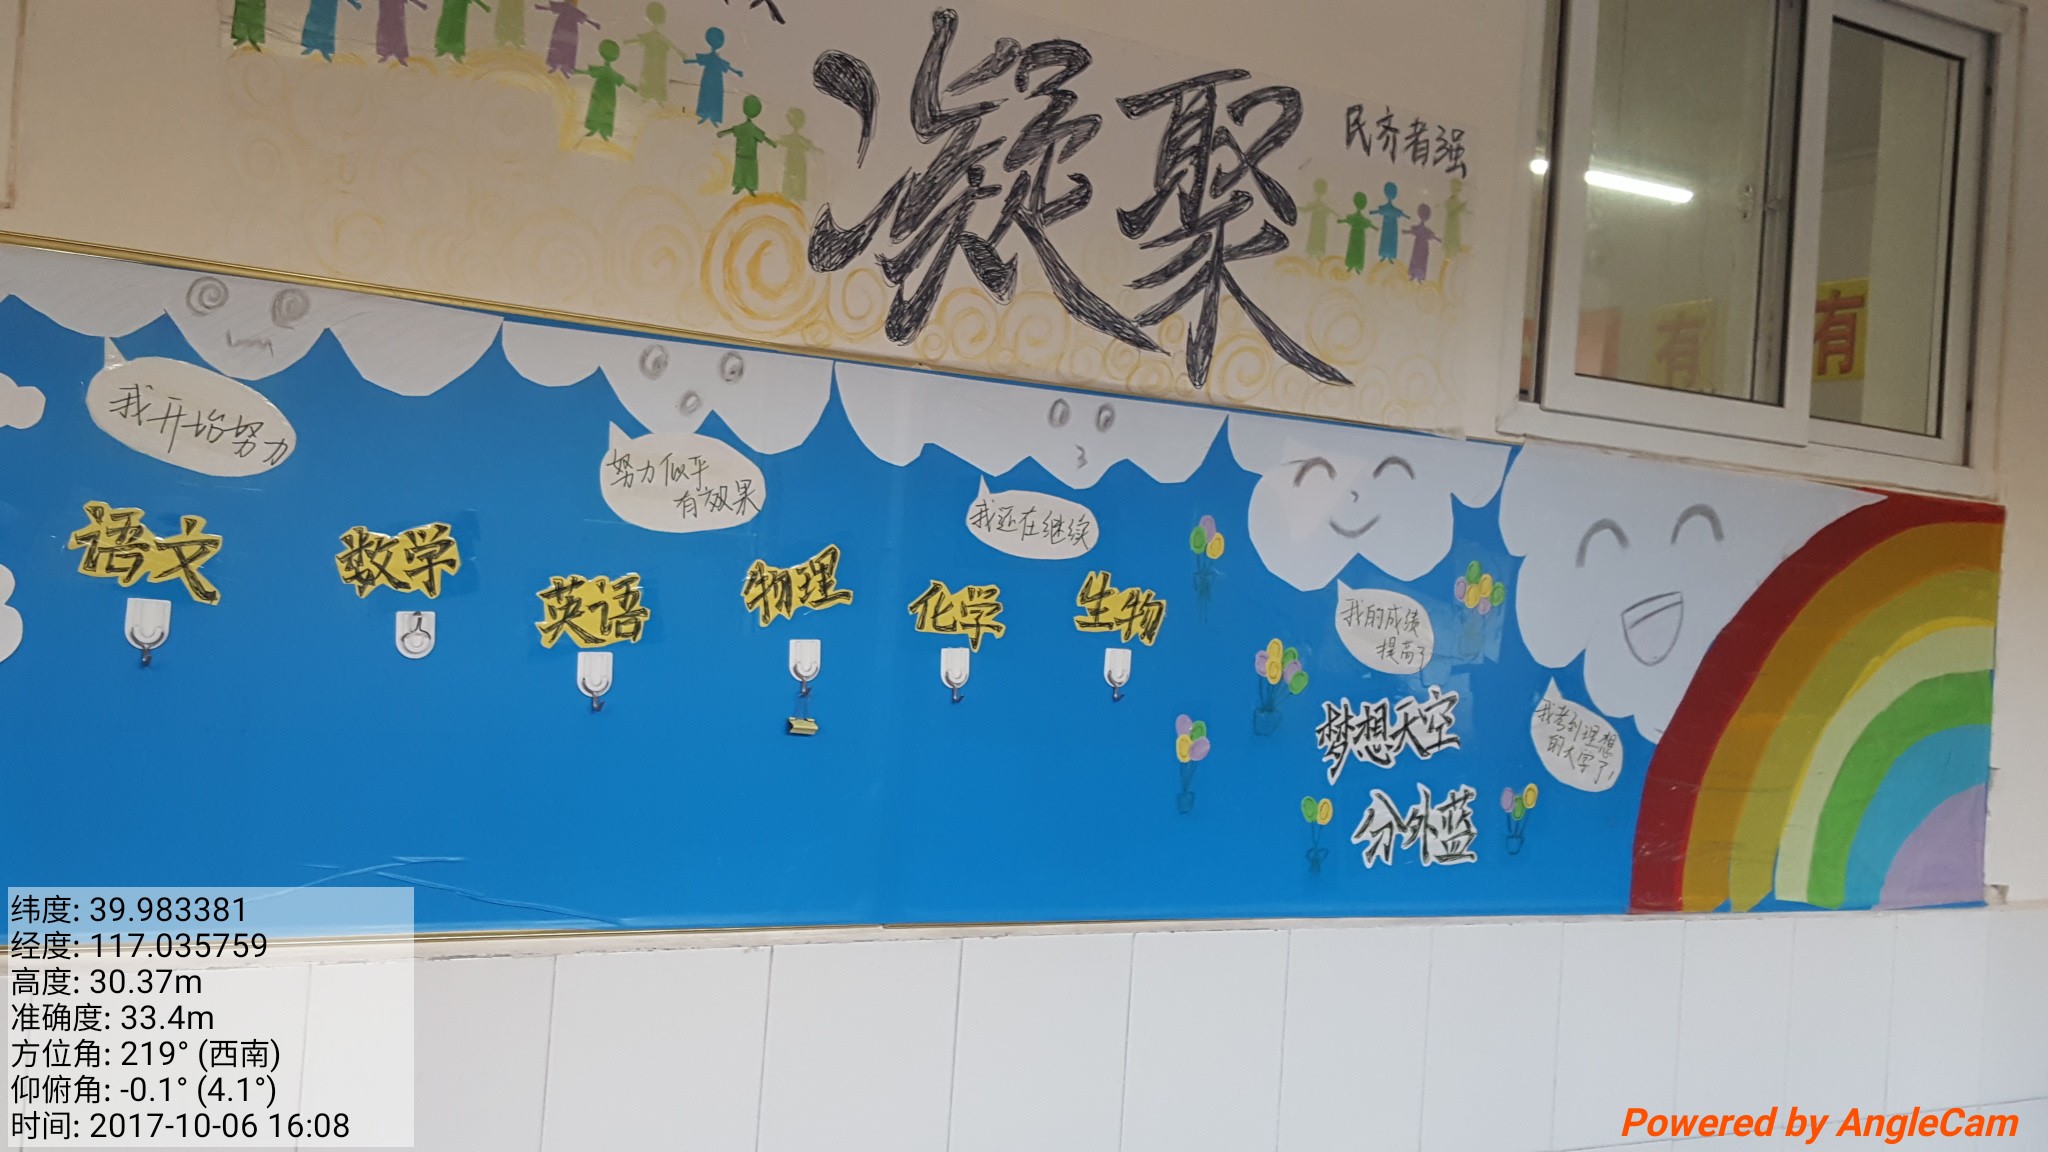 凝聚
民齐者强
有
有
我开始努力
努力似乎
有效果
我还在继续
我的成绩
提高了
我考到理想
的大学了!
语文
数学
英语
物理
化学
生物
梦想天空
分外蓝
纬度: 39.983381
经度: 117.035759
高度: 30.37m
准确度: 33.4m
方位角: 219° (西南)
仰俯角: -0.1° (4.1°)
时间: 2017-10-06 16:08
Powered by AngleCam